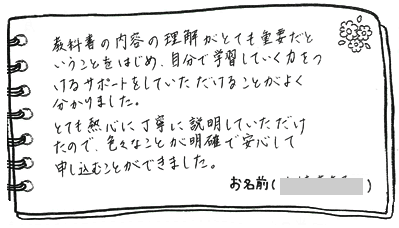 教科書の内容の理解がとても重要だと
いうことをはじめ、自分で学習していく力をつ
けるサポートをしていただけることがよく
分かりました。
とても熱心に丁寧に説明していただけ
たので、色々なことが明確で安心して
申し込むことができました。
お名前( )